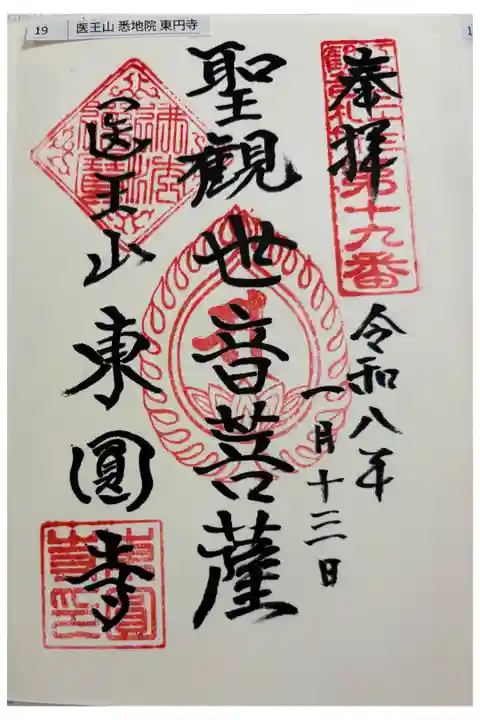 19 医王山 悉地院 東円寺
奉拝
第十九番
令和八年
一月十三日
聖観世音菩薩
医王山東圓寺
佛法僧寶